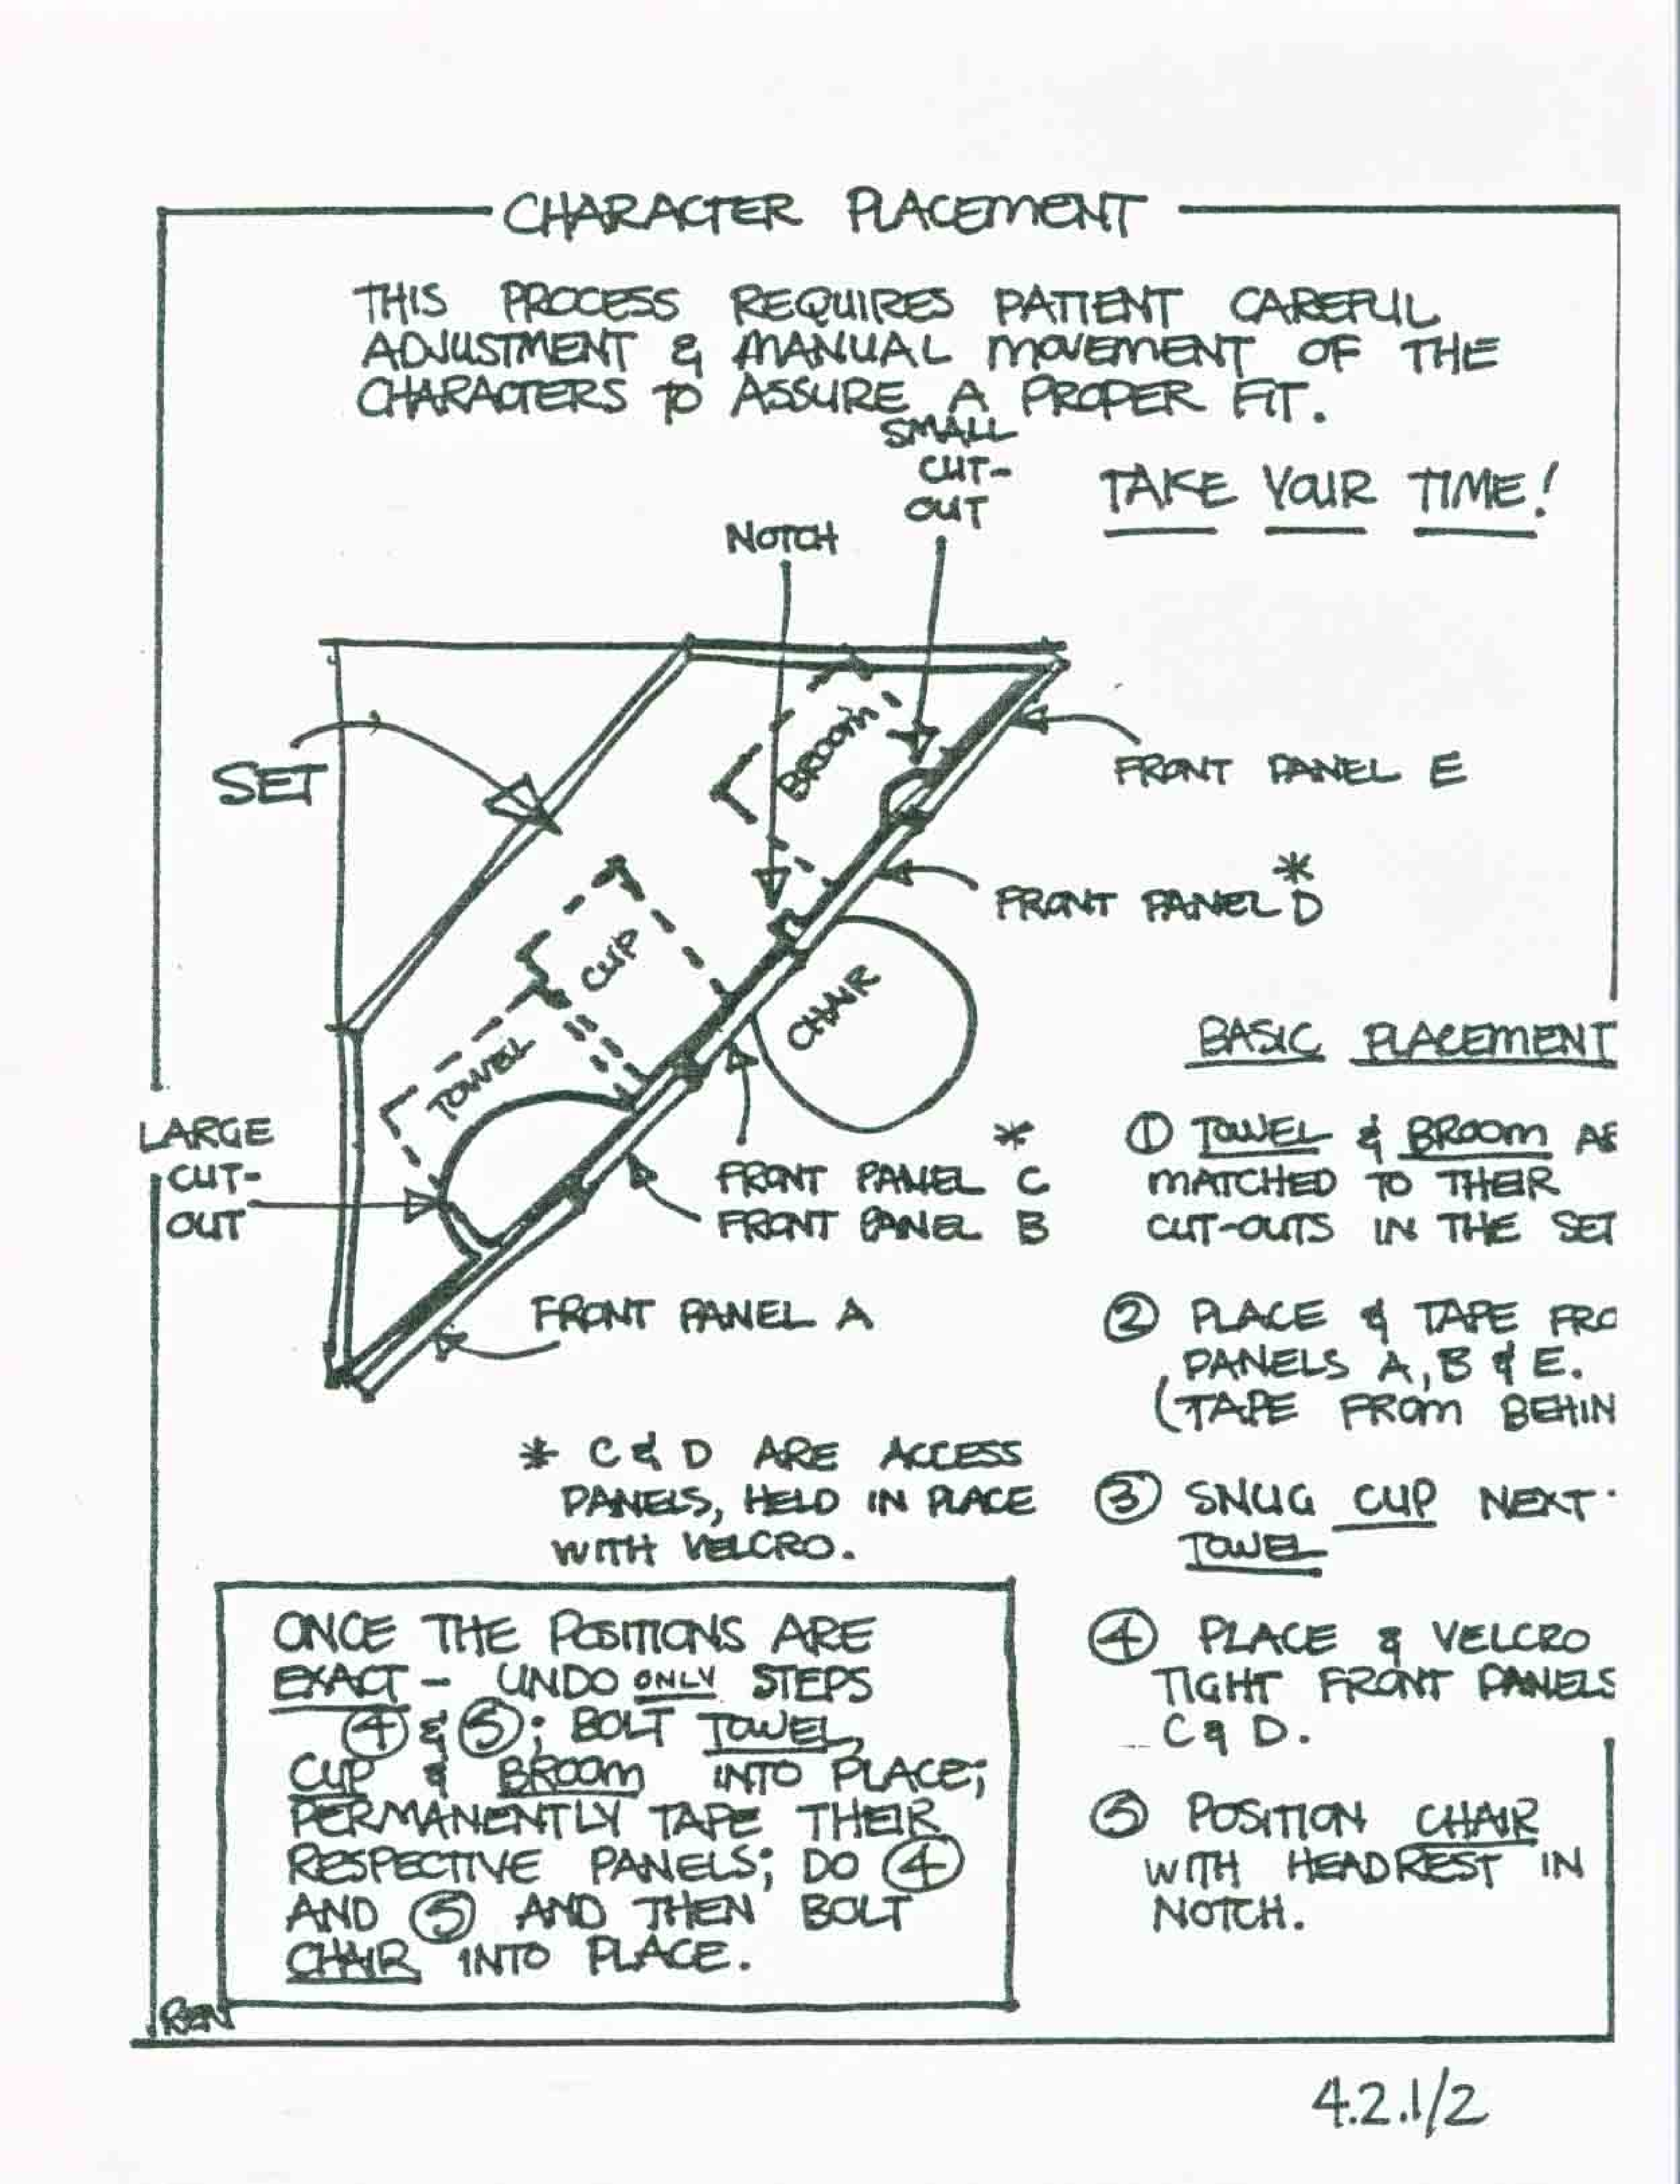 CHARACTER PLACEMENT
THIS PROCESS REQUIRES PATIENT CAREFUL
ADJUSTMENT & MANUAL MOVEMENT OF THE
CHARACTERS TO ASSURE A PROPER FIT.
SMALL
CUT-
OUT
TAKE YOUR TIME!
NOTCH
SET
BROOM
FRONT PANEL E
*
FRONT PANEL D
CUP
CHAIR
TOWEL
LARGE
CUT-
OUT
*
FRONT PANEL C
FRONT PANEL B
FRONT PANEL A
* C & D ARE ACCESS
PANELS, HELD IN PLACE
WITH VELCRO.
BASIC PLACEMENT
① TOWEL & BROOM AS
MATCHED TO THEIR
CUT-OUTS IN THE SET
② PLACE & TAPE FRO
PANELS A, B & E.
(TAPE FROM BEHIN
③ SNUG CUP NEXT
TOWEL
④ PLACE & VELCRO
TIGHT FRONT PANELS
C & D.
⑤ POSITION CHAIR
WITH HEADREST IN
NOTCH.
ONCE THE POSITIONS ARE
EXACT - UNDO ONLY STEPS
④ & ⑤; BOLT TOWEL,
CUP & BROOM INTO PLACE;
PERMANENTLY TAPE THEIR
RESPECTIVE PANELS; DO ④
AND ⑤ AND THEN BOLT
CHAIR INTO PLACE.
REN
4.2.1/2